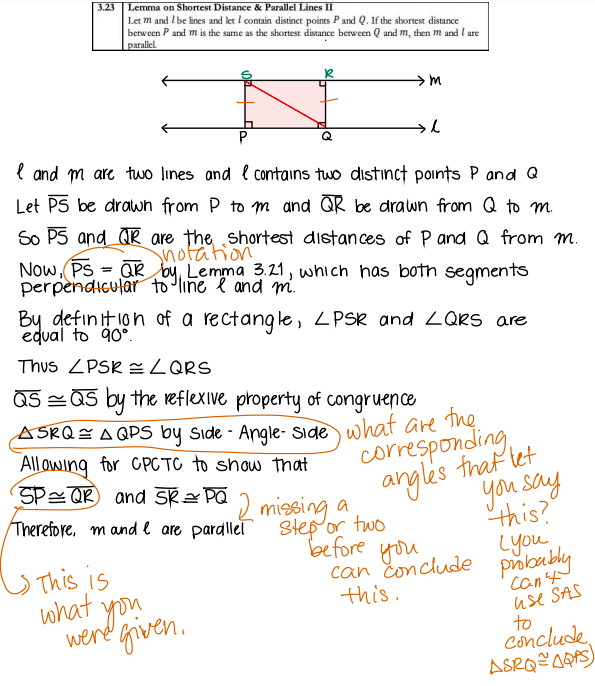 3.23 Lemma on Shortest Distance & Parallel Lines II
Let m and l be lines and let l contain distinct points P and Q. If the shortest distance
between P and m is the same as the shortest distance between Q and m, then m and l are
parallel.
S R m
P Q l
l and m are two lines and l contains two distinct points P and Q
Let P̅S̅ be drawn from P to m and Q̅R̅ be drawn from Q to m.
So P̅S̅ and Q̅R̅ are the shortest distances of P and Q from m.
notation
Now, P̅S̅ = Q̅R̅ by Lemma 3.21, which has both segments
perpendicular to line l and m.
By definition of a rectangle, ∠PSR and ∠QRS are
equal to 90°.
Thus ∠PSR ≅ ∠QRS
Q̅S̅ ≅ Q̅S̅ by the reflexive property of congruence
△SRQ ≅ △QPS by Side - Angle - Side
Allowing for CPCTC to show that
S̅P̅ ≅ Q̅R̅ and S̅R̅ ≅ P̅Q̅
Therefore, m and l are parallel
what are the
corresponding
angles that let
you say
this?
(you
probably
can't
use SAS
to
conclude
△SRQ ≅ △QPS)
missing a
step or two
before you
can conclude
this.
This is
what you
were given.